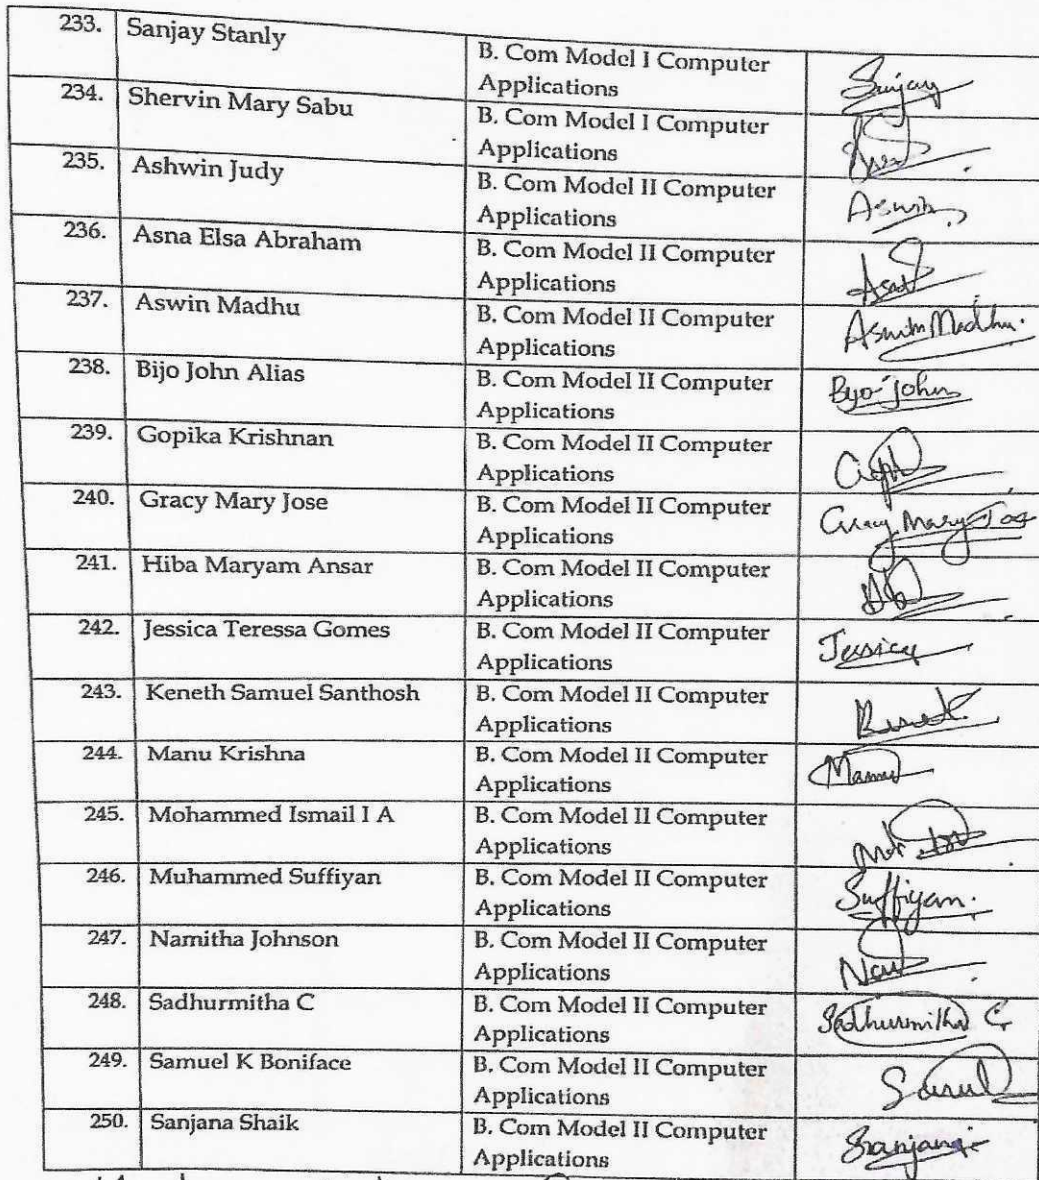 233. Sanjay Stanly B. Com Model I Computer
Applications Sanjay
234. Shervin Mary Sabu B. Com Model I Computer
Applications
235. Ashwin Judy B. Com Model II Computer
Applications Aswin
236. Asna Elsa Abraham B. Com Model II Computer
Applications
237. Aswin Madhu B. Com Model II Computer
Applications Aswin Madhu.
238. Bijo John Alias B. Com Model II Computer
Applications Byo John
239. Gopika Krishnan B. Com Model II Computer
Applications
240. Gracy Mary Jose B. Com Model II Computer
Applications Gracy Mary Jose
241. Hiba Maryam Ansar B. Com Model II Computer
Applications
242. Jessica Teressa Gomes B. Com Model II Computer
Applications Jessica
243. Keneth Samuel Santhosh B. Com Model II Computer
Applications
244. Manu Krishna B. Com Model II Computer
Applications Manu
245. Mohammed Ismail I A B. Com Model II Computer
Applications
246. Muhammed Suffiyan B. Com Model II Computer
Applications Suffiyan.
247. Namitha Johnson B. Com Model II Computer
Applications
248. Sadhurmitha C B. Com Model II Computer
Applications Sadhurmitha C
249. Samuel K Boniface B. Com Model II Computer
Applications
250. Sanjana Shaik B. Com Model II Computer
Applications Sanjana